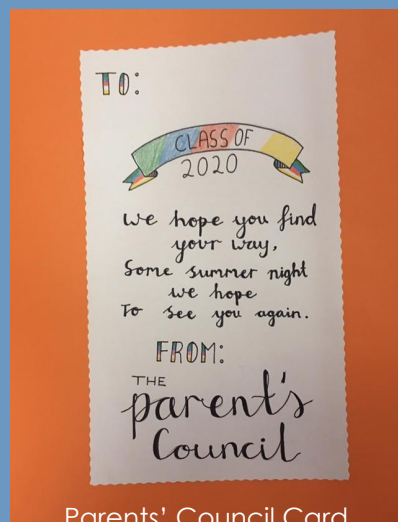 TO:
CLASS OF
2020
We hope you find
your way,
Some summer night
we hope
To see you again.
FROM:
THE
parent's
Council
Parents' Council Card